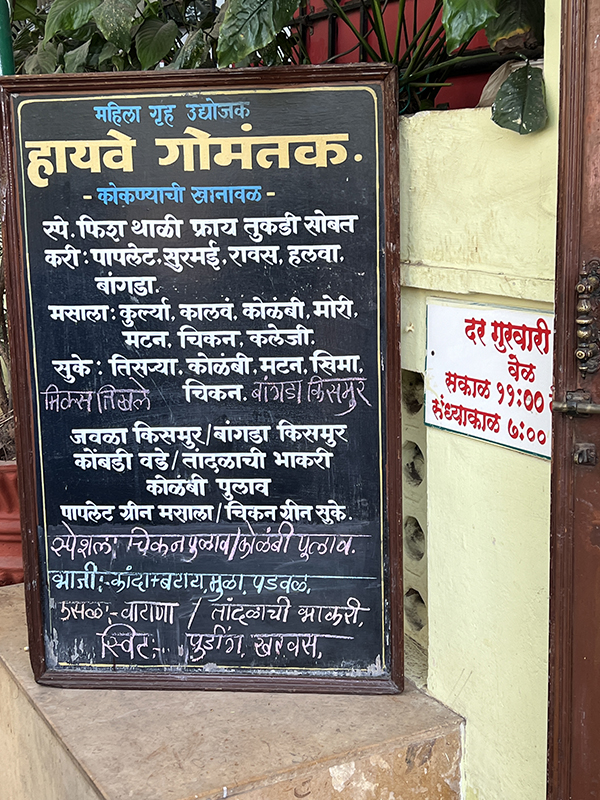 महिला गृह उद्योजक
हायवे गोमंतक.
- कोकण्याची खानावळ -
स्पे. फिश थाळी फ्राय तुकडी सोबत
करी : पापलेट, सुरमई, रावस, हलवा,
बांगडा.
मसाला : कुर्ल्या, कालवं, कोळंबी, मोरी,
मटन, चिकन, कलेजी.
सुके : तिसऱ्या, कोळंबी, मटन, खिमा,
चिकन. बांगडा किसमुर
मिक्स तिखले
जवळा किसमुर/बांगडा किसमुर
कोंबडी वडे/तांदळाची भाकरी
कोळंबी पुलाव
पापलेट ग्रीन मसाला/चिकन ग्रीन सुके.
स्पेशल: चिकन पुलाव/कोळंबी पुलाव.
भाजी:- कांदा+बटाटा, मुळा, पडवळ,
उसळ:- वाटाणा / तांदळाची भाकरी,
स्विट:- पुडींग, खरवस,
दर गुरवारी
वेळ
सकाळ ११:००
संध्याकाळ ७:००